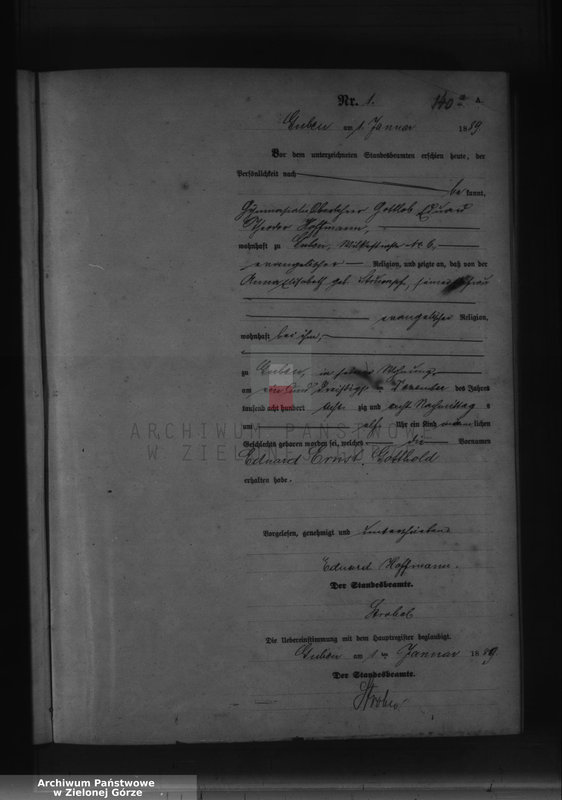 Nr. 1. 140 a A.
Guben am 1. Januar 1889.
Vor dem unterzeichneten Standesbeamten erschien heute, der
Persönlichkeit nach
be kannt,
Gymnasial Oberlehrer Gottlob Eduard
Theodor Hoffmann,
wohnhaft zu Guben, No 6,
evangelischer Religion, und zeigte an, daß von der
Anna Elisabeth geb.
evangelischer Religion,
wohnhaft bei ihm,
zu Guben, in seiner Wohnung,
am ein und dreißigsten Dezember des Jahres
tausend acht hundert acht zig und acht Nachmittag s
um elf Uhr ein Kind männlichen
Geschlechts geboren worden sei, welches die Vornamen
Eduard Ernst Gotthold
erhalten habe.
Vorgelesen, genehmigt und unterschrieben
Eduard Hoffmann.
Der Standesbeamte.
Strobel
Die Uebereinstimmung mit dem Hauptregister beglaubigt.
Guben am 1 ten Januar 1889
Der Standesbeamte.
ARCHIWUM PAŃSTWOWE
W ZIELONEJ GÓRZE
Archiwum Państwowe
w Zielonej Górze